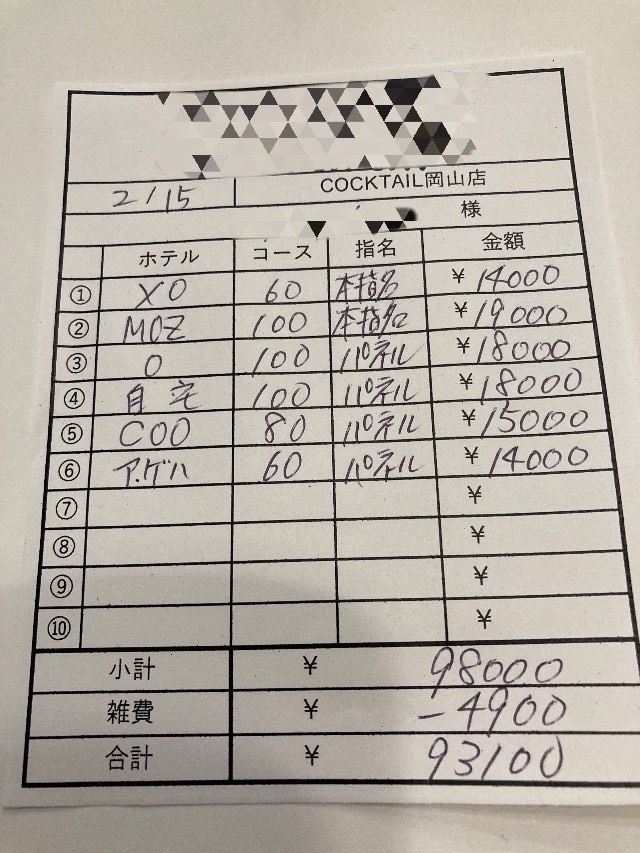 2/15 COCKTAIL岡山店
様
ホテル コース 指名 金額
① XO 60 本指名 ¥14000
② MOZ 100 本指名 ¥19000
③ O 100 パネル ¥18000
④ 自宅 100 パネル ¥18000
⑤ COO 80 パネル ¥15000
⑥ アゲハ 60 パネル ¥14000
⑦ ¥
⑧ ¥
⑨ ¥
⑩ ¥
小計 ¥ 98000
雑費 ¥ -4900
合計 ¥ 93100